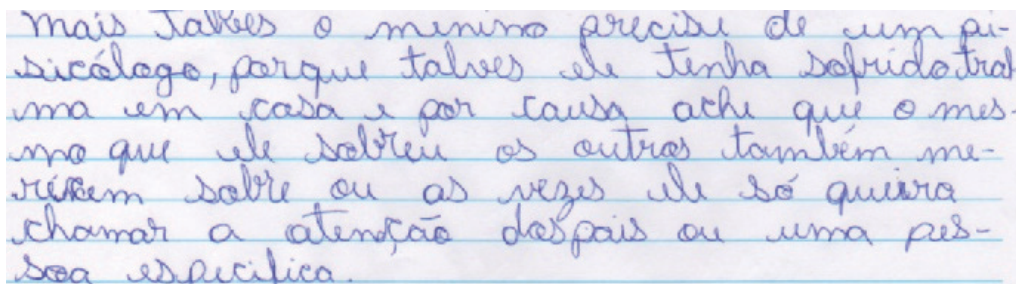 mais talves o menino precise de um pi-
sicólogo, porque talves ele tenha sofrido tral
ma em casa e por causa ache que o mes-
mo que ele sobreu os outros também me-
recem sobre ou as vezes ele só queira
chamar a atenção dos pais ou uma pes-
soa especifica.